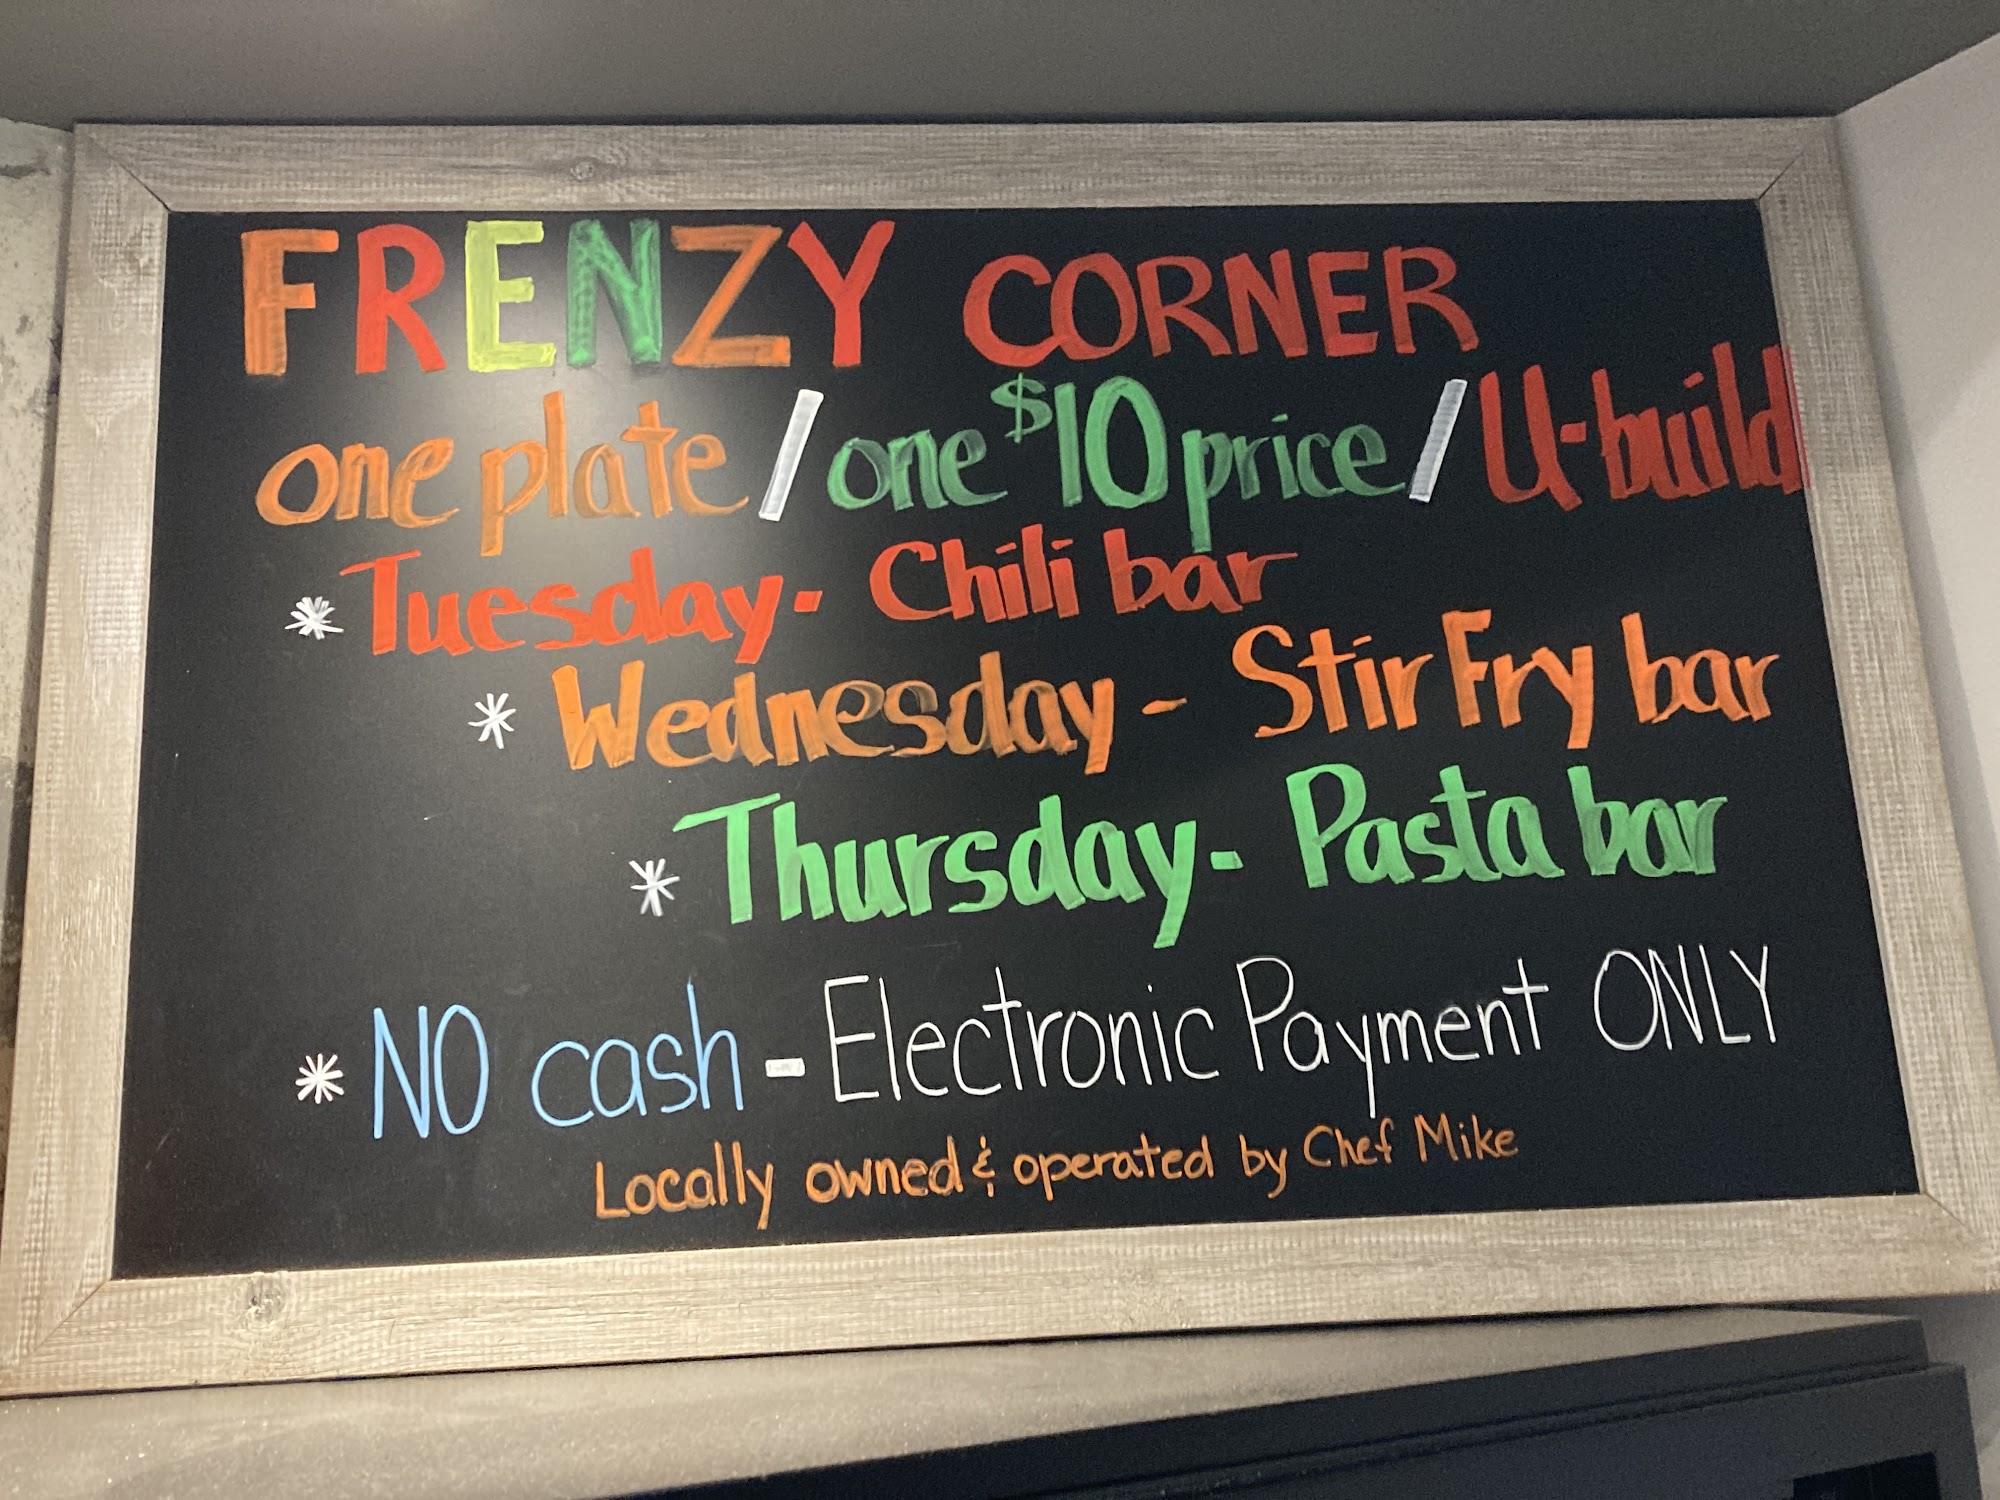 FRENZY CORNER
one plate / one $10 price / U-build
* Tuesday - Chili bar
* Wednesday - Stir Fry bar
* Thursday - Pasta bar
* NO cash - Electronic Payment ONLY
Locally owned & operated by Chef Mike